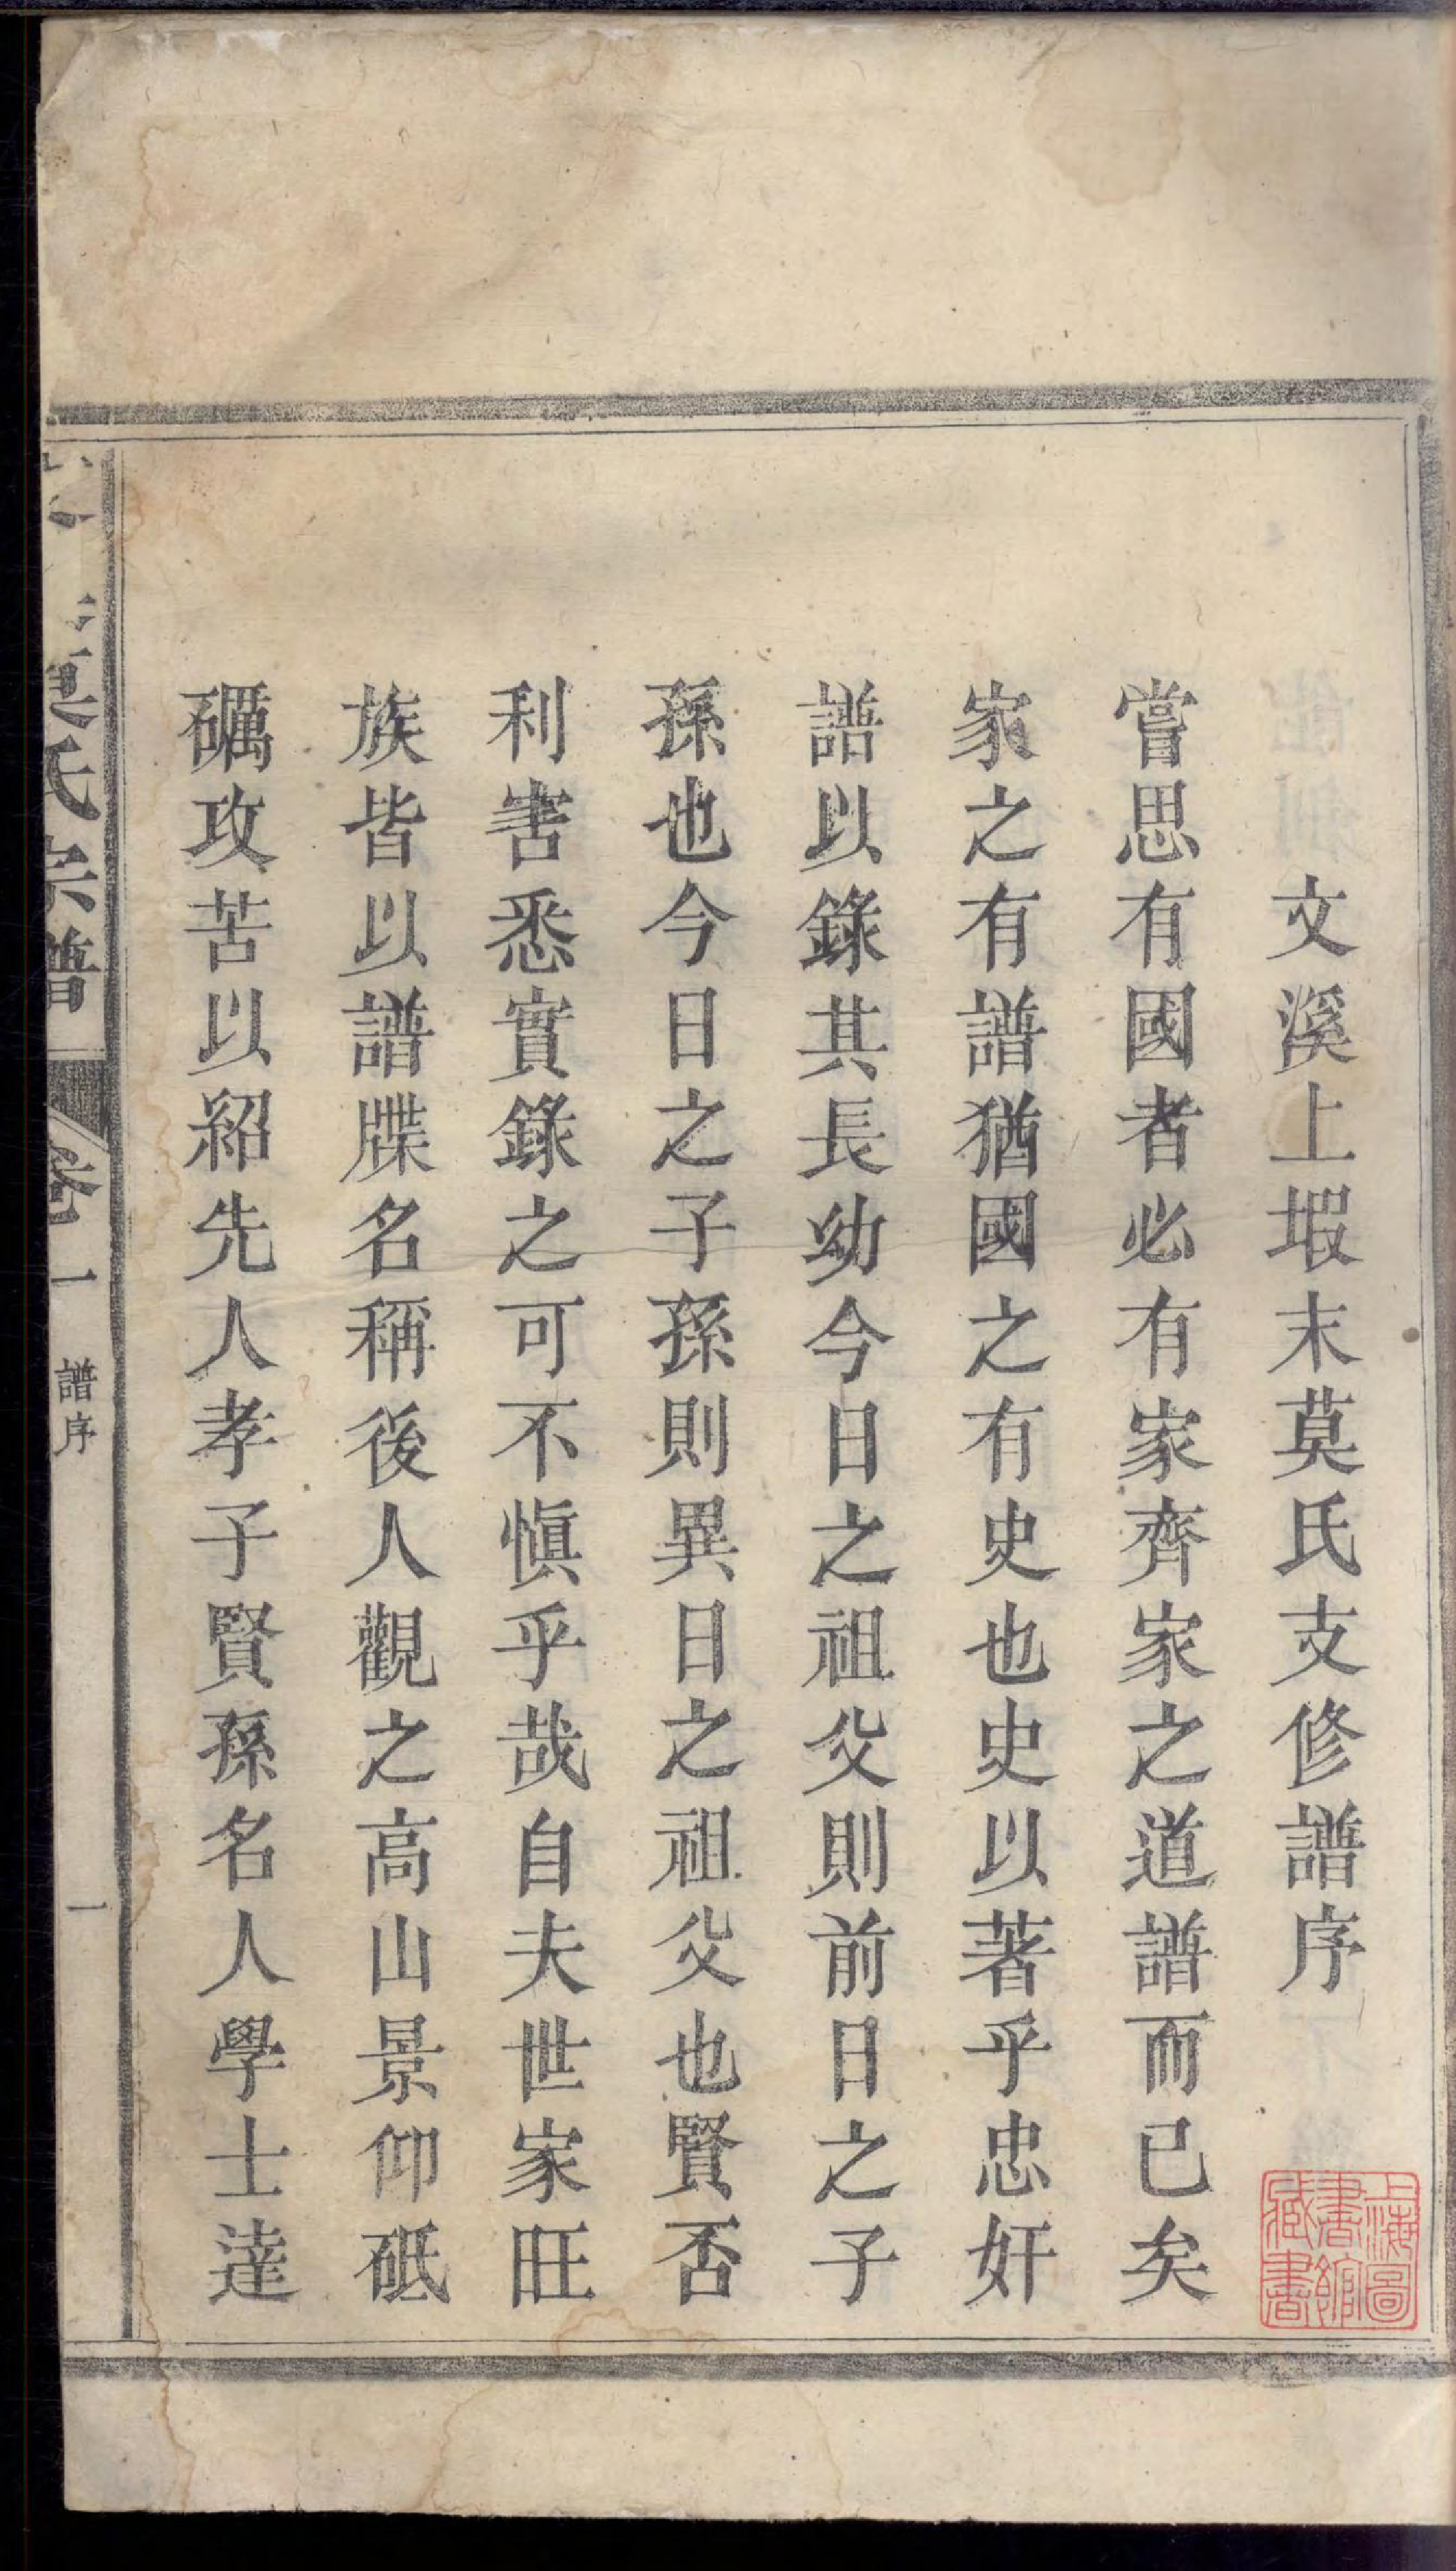 文溪上塅末莫氏支修譜序
嘗思有國者必有家齊家之道譜而已矣
家之有譜猶國之有史也史以著乎忠奸
譜以錄其長幼今日之祖父則前日之子
孫也今日之子孫則異日之祖父也賢否
利害悉實錄之可不愼乎哉自夫世家旺
族皆以譜牒名稱後人觀之高山景仰砥
礪攻苦以紹先人孝子賢孫名人學士達
莫氏宗譜
卷一
譜序
一
上海圖
書館
藏書